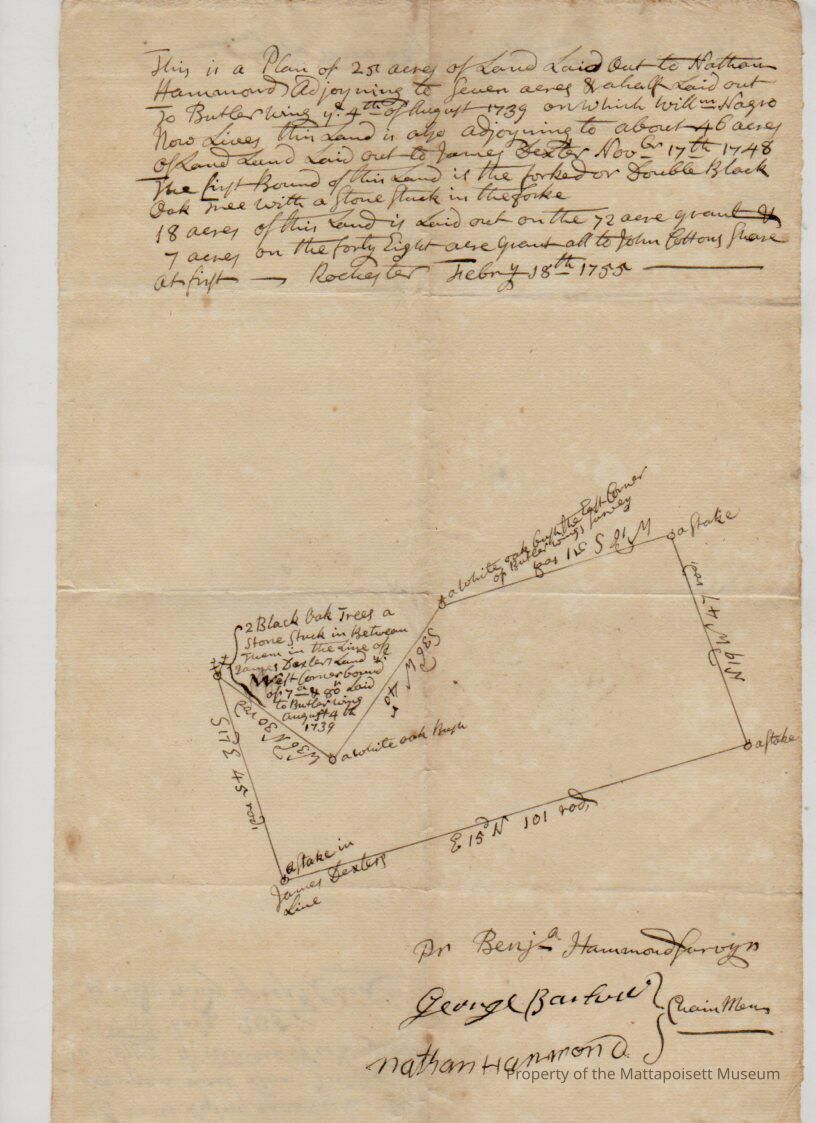 This is a Plan of 25 acres of Land Laid Out to Nathan
Hammond Adjoyning to Seven acres & a half Laid out
To Butler Wing ye 4th of August 1739 on which Willm Nagro
Now Lives this Land is also adjoyning to about 46 acres
of Land Land Laid out to James Dexter Novbr 17th 1748
The first Bound of this Land is the forked or Double Black
Oak Tree with a Stone Stuck in the forke
18 acres of this Land is Laid out on the 72 acre grant &
7 acres on the forty Eight acre Grant all to John Cottons Share
at first — Rochester Febry 18th 1755
a White oak bush the East Corner
of Butler Wings Survey
W 15 S 31 rod
a Stake
N 19 W 47 rod
a Stake
E 15d N 101 rod
a Stake in
James Dexters
Line
S 17 E 45 rod
2 Black Oak Trees a
Stone Stuck in Between
Them in the Line of
James Dexters Land ye
West Corner bound
of 7 & 80 Laid
to Butler Wing
August 4th
1739
W 36 N 30 rod
a White oak Bush
S 36 W 40
Pr Benja Hammond Survyr
George Barlow
Chain Men
Nathan Hammond
Property of the Mattapoisett Museum